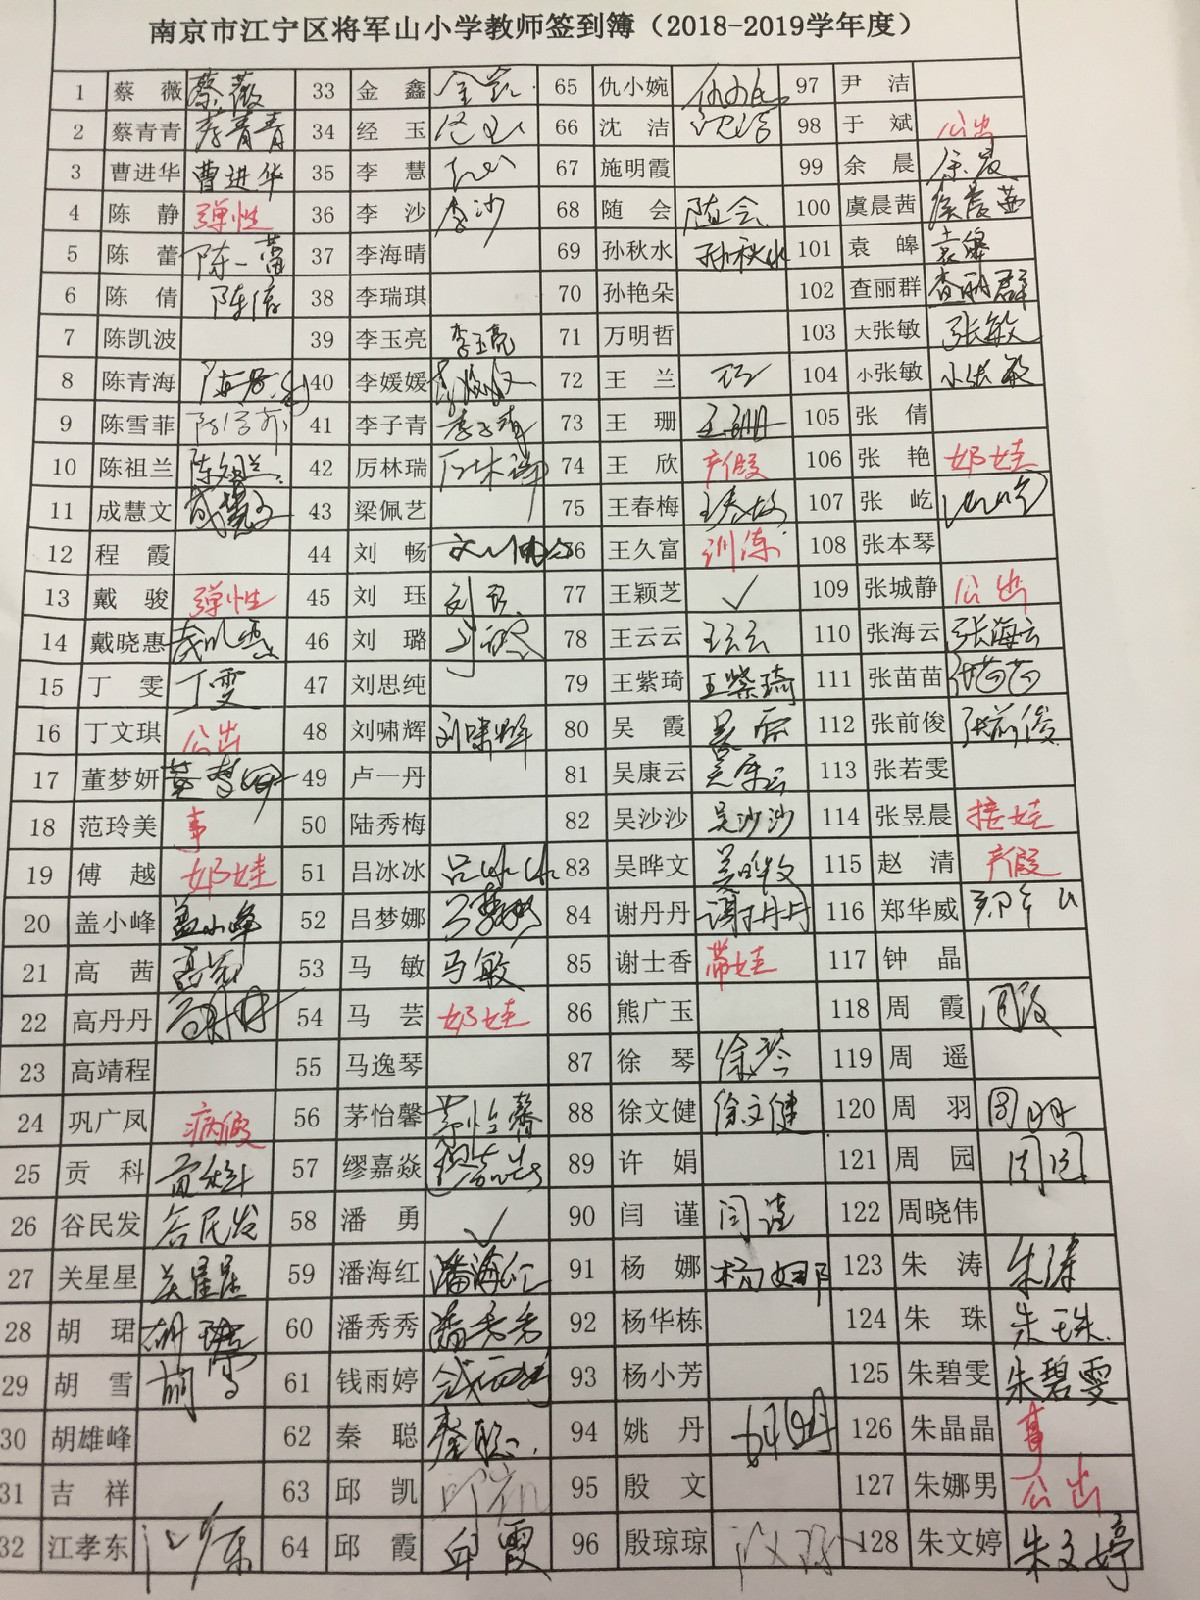 南京市江宁区将军山小学教师签到簿（2018-2019学年度）
1 蔡薇 蔡薇 33 金鑫 65 仇小婉 97 尹洁
2 蔡青青 蔡青青 34 经玉 经玉 66 沈洁 沈洁 98 于斌 公出
3 曹进华 曹进华 35 李慧 67 施明霞 99 余晨 余晨
4 陈静 弹性 36 李沙 李沙 68 随会 随会 100 虞晨茜 虞晨茜
5 陈蕾 陈蕾 37 李海晴 69 孙秋水 孙秋水 101 袁皞 袁皞
6 陈倩 陈倩 38 李瑞琪 70 孙艳朵 102 查丽群 查丽群
7 陈凯波 39 李玉亮 李玉亮 71 万明哲 103 大张敏 张敏
8 陈青海 40 李媛媛 李媛媛 72 王兰 104 小张敏 小张敏
9 陈雪菲 陈雪菲 41 李子青 李子青 73 王珊 王珊 105 张倩
10 陈祖兰 陈祖兰 42 厉林瑞 厉林瑞 74 王欣 产假 106 张艳 奶娃
11 成慧文 成慧文 43 梁佩艺 75 王春梅 王春梅 107 张屹
12 程霞 44 刘畅 76 王久富 训练 108 张本琴
13 戴骏 弹性 45 刘珏 刘珏 77 王颖芝 ✓ 109 张城静 公出
14 戴晓惠 戴晓惠 46 刘璐 刘璐 78 王云云 王云云 110 张海云 张海云
15 丁雯 丁雯 47 刘思纯 79 王紫琦 王紫琦 111 张苗苗 张苗苗
16 丁文琪 公出 48 刘啸辉 刘啸辉 80 吴霞 吴霞 112 张前俊 张前俊
17 董梦妍 董梦妍 49 卢一丹 81 吴康云 吴康云 113 张若雯
18 范玲美 事 50 陆秀梅 82 吴沙沙 吴沙沙 114 张昱晨 接娃
19 傅越 奶娃 51 吕冰冰 吕冰冰 83 吴晔文 吴晔文 115 赵清 产假
20 盖小峰 盖小峰 52 吕梦娜 吕梦娜 84 谢丹丹 谢丹丹 116 郑华威
21 高茜 高茜 53 马敏 马敏 85 谢士香 带娃 117 钟晶
22 高丹丹 高丹丹 54 马芸 奶娃 86 熊广玉 118 周霞 周霞
23 高靖程 55 马逸琴 87 徐琴 徐琴 119 周遥
24 巩广凤 病假 56 茅怡馨 茅怡馨 88 徐文健 徐文健 120 周羽 周羽
25 贡科 贡科 57 缪嘉焱 缪嘉焱 89 许娟 121 周园 周园
26 谷民发 谷民发 58 潘勇 ✓ 90 闫谨 闫谨 122 周晓伟
27 关星星 关星星 59 潘海红 潘海红 91 杨娜 杨娜 123 朱涛 朱涛
28 胡珺 胡珺 60 潘秀秀 潘秀秀 92 杨华栋 124 朱珠 朱珠
29 胡雪 胡雪 61 钱雨婷 钱雨婷 93 杨小芳 125 朱碧雯 朱碧雯
30 胡雄峰 62 秦聪 秦聪 94 姚丹 姚丹 126 朱晶晶 事
31 吉祥 63 邱凯 邱凯 95 殷文 127 朱娜男 公出
32 江孝东 64 邱霞 邱霞 96 殷琼琼 128 朱文婷 朱文婷